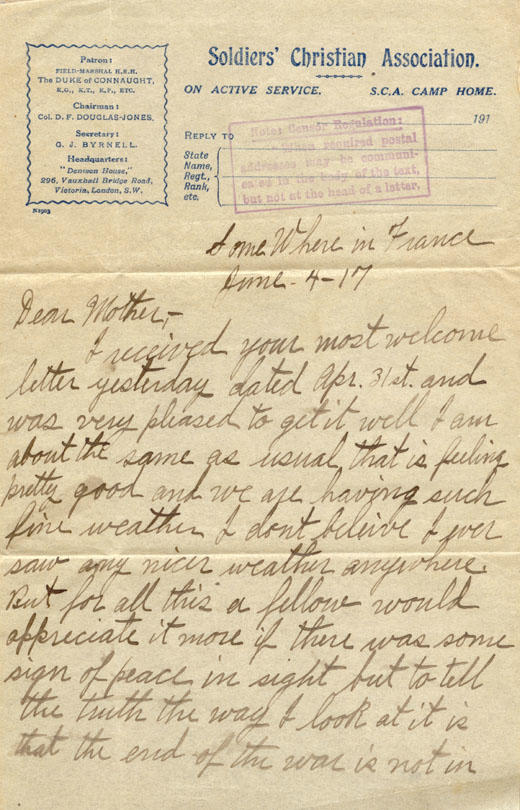 Patron:
FIELD-MARSHAL H.R.H.
The DUKE of CONNAUGHT,
K.G., K.T., K.P., ETC.
Chairman:
Col. D. F. DOUGLAS-JONES.
Secretary:
G. J. BYRNELL.
Headquarters:
"Denison House,"
296, Vauxhall Bridge Road,
Victoria, London, S.W.
N2903
Soldiers' Christian Association.
ON ACTIVE SERVICE. S.C.A. CAMP HOME.
191
REPLY TO
State
Name,
Regt.,
Rank,
etc.
Note: Censor Regulation:
"When required postal
addresses may be communi-
cated in the body of the text,
but not at the head of a letter.
Some Where in France
June - 4 - 17
Dear Mother,-
I received your most welcome
letter yesterday dated Apr. 31st. and
was very pleased to get it well I am
about the same as usual that is feeling
pretty good and we are having such
fine weather I dont beleive I ever
saw any nicer weather anywhere.
But for all this a fellow would
appreciate it more if there was some
sign of peace in sight but to tell
the truth the way I look at it is
that the end of the war is not in